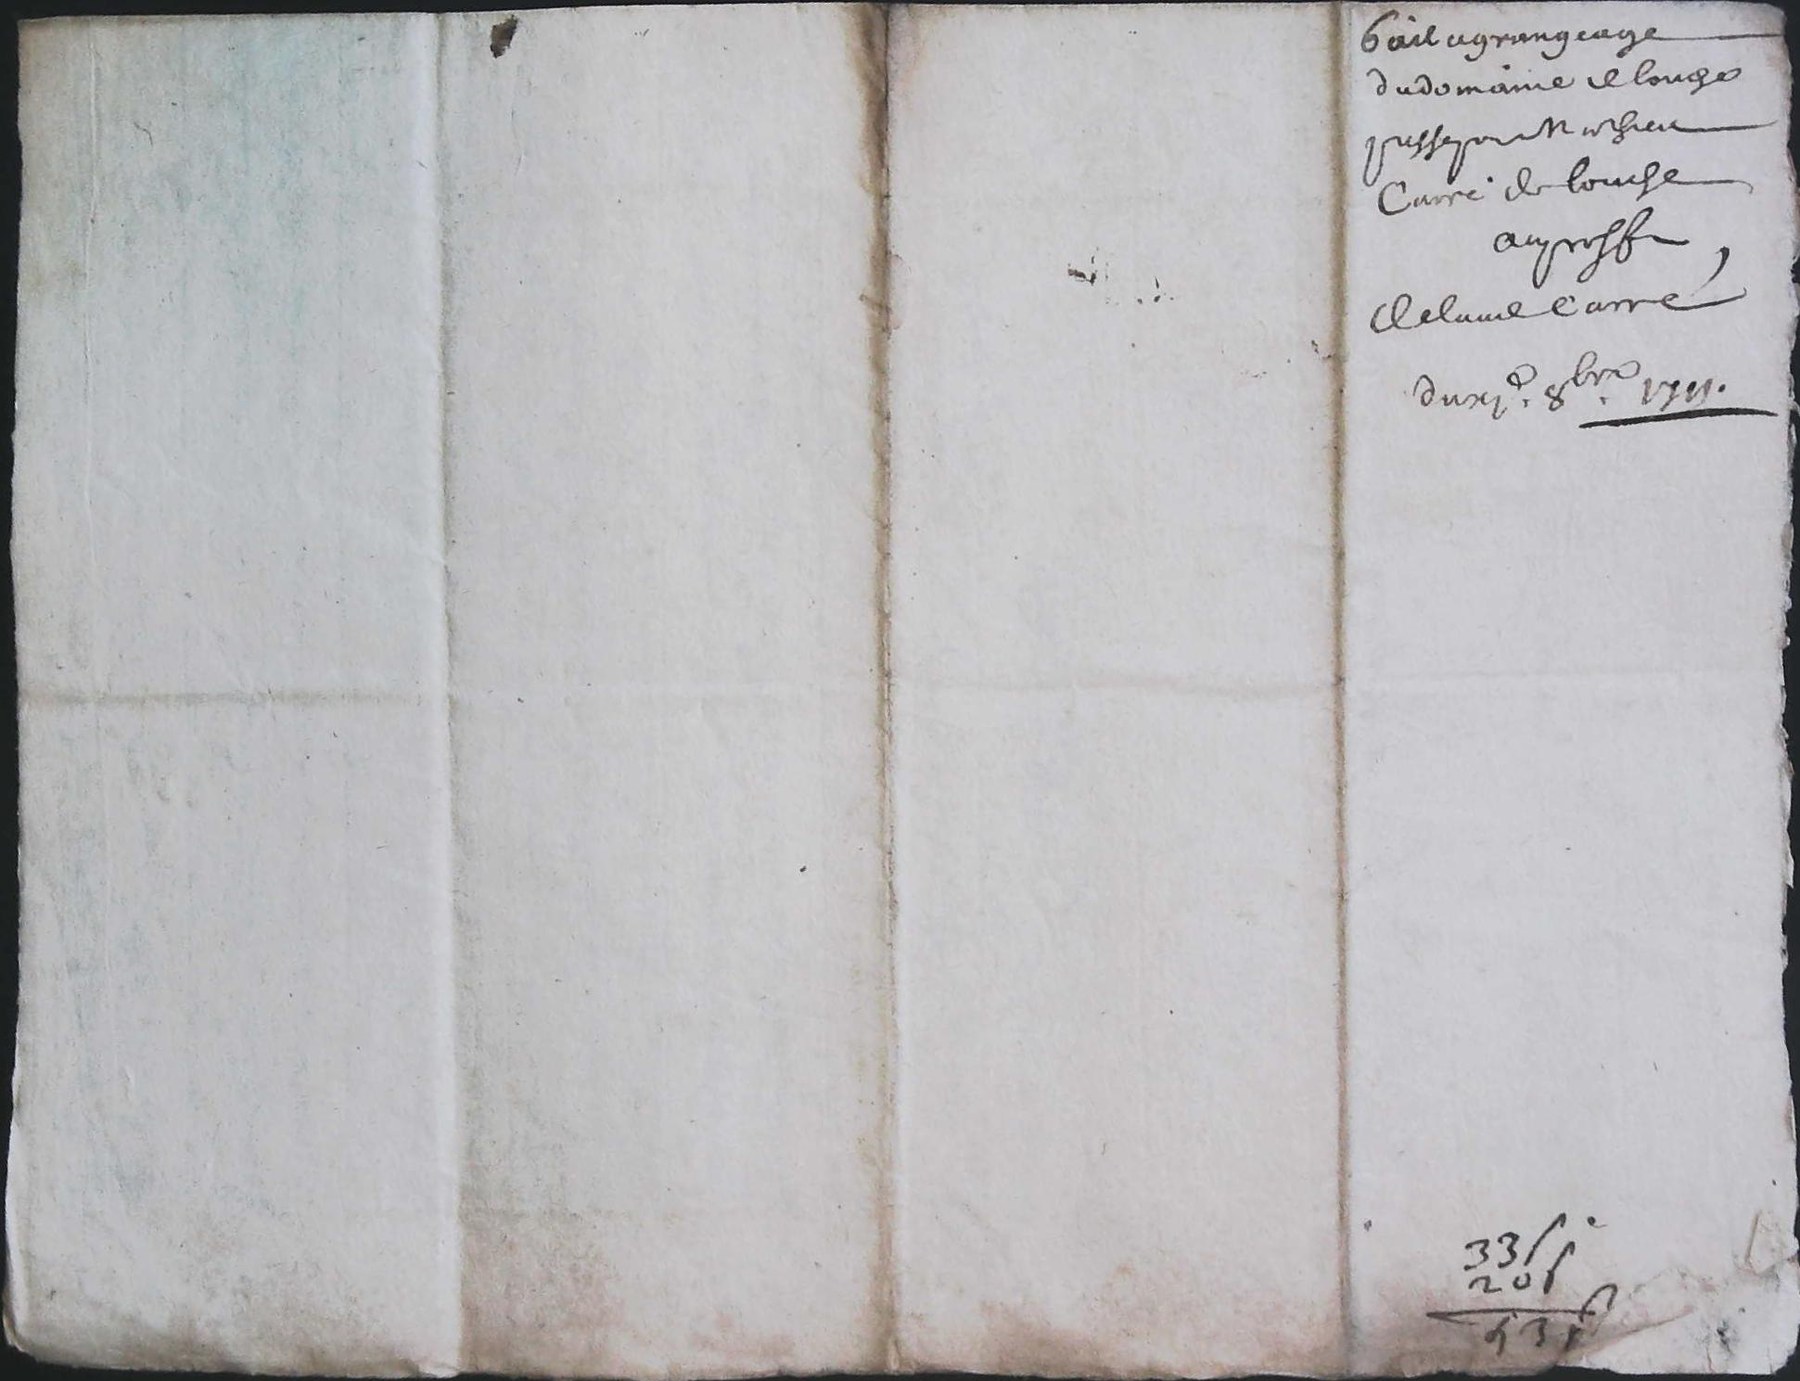 bail a grangeage
du domaine de bouge
passé par Mathieu
Carré de bouche
au proffit
de Claude Carre
du xj.e 8bre 1711.
33ſ
20ſ
53ſ